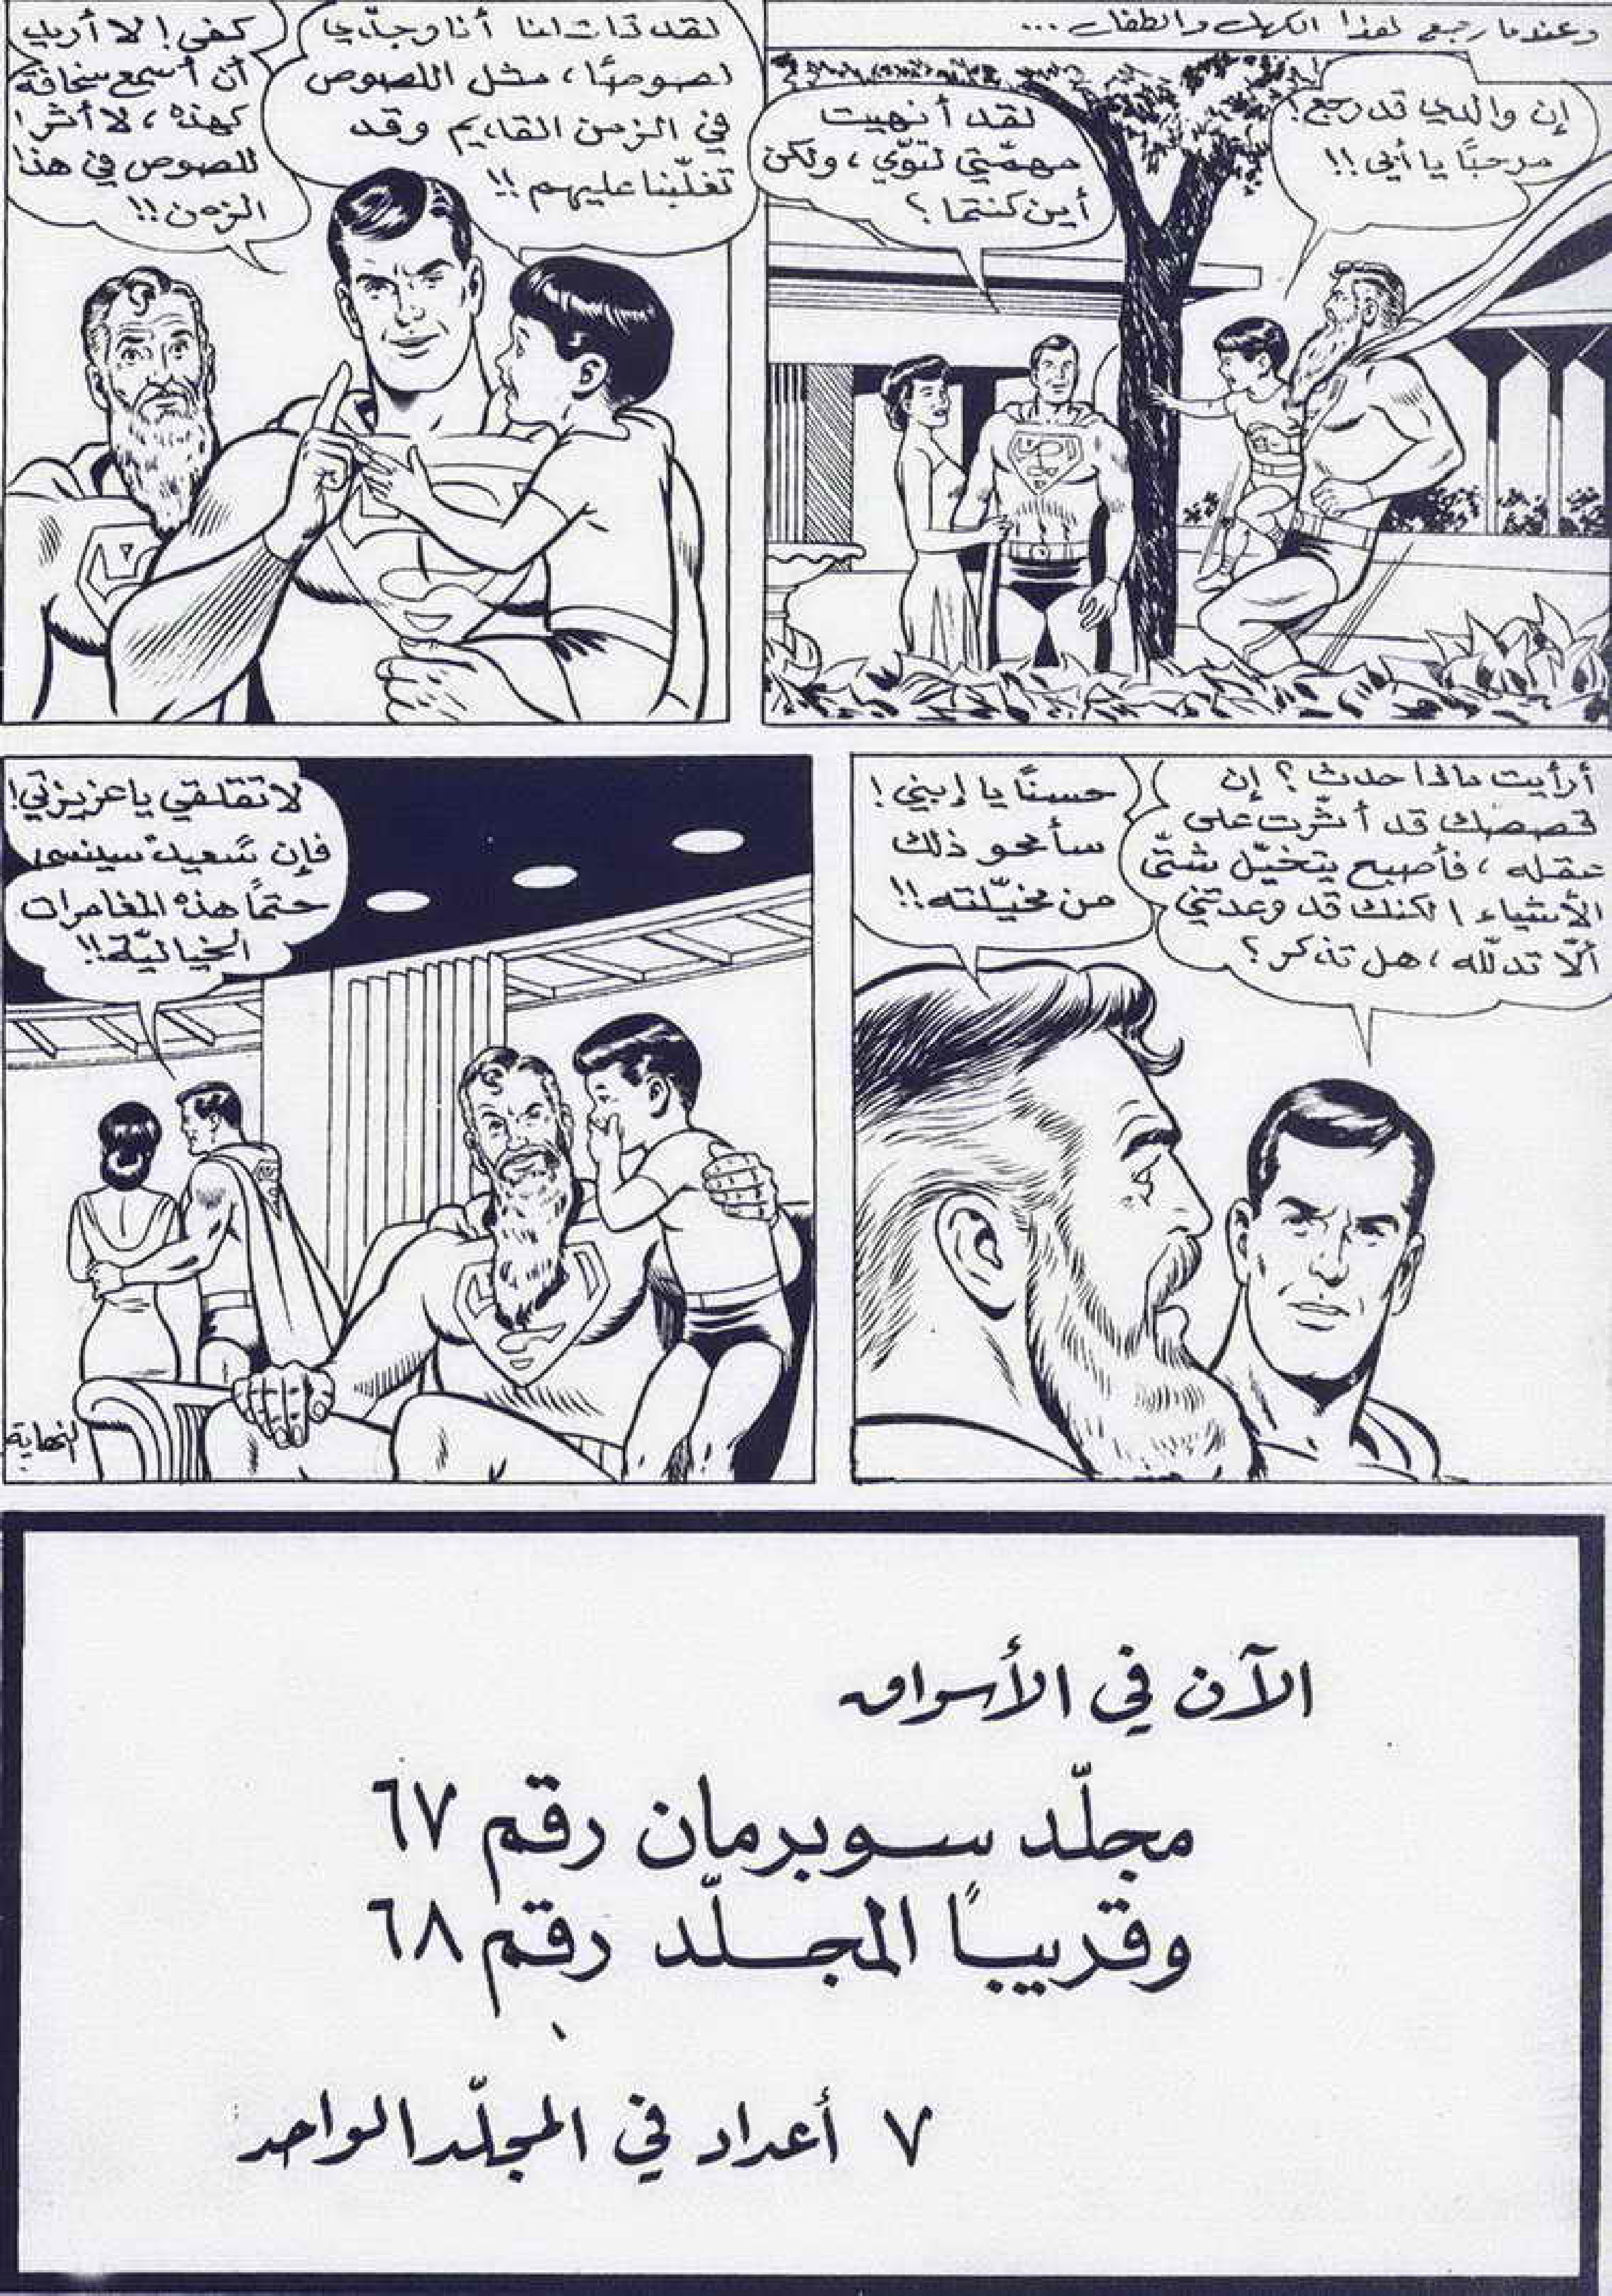 وعندما رجع هذا الكهل والطفل ...
إن والدي قد رجع!
مرحبًا يا أبي !!
لقد أنهيت
مهمّتي لتوّي ، ولكن
أين كنتما ؟
لقد قاتلنا أنا وجدّي
لصوصًا ، مثل اللصوص
في الزمن القديم وقد
تغلّبنا عليهم !!
كفى ! لا أريد
أن أسمع سخافة
كهذه ، لا أثر
للصوص في هذا
الزمن !!
أرأيت ماذا حدث ؟ إن
قصصك قد أثّرت على
عقله ، فأصبح يتخيّل شتّى
الأشياء ! لكنك قد وعدتني
ألّا تدلّله ، هل تذكر ؟
حسنًا يا إبني !
سأمحو ذلك
من مخيّلته !!
لا تقلقي يا عزيزتي !
فإن سعيد سينسى
حتمًا هذه المغامرات
الخياليّة !!
النهاية
الآن في الأسواق
مجلّد سوبرمان رقم ٦٧
وقريبًا المجلّد رقم ٦٨
٧ أعداد في المجلّد الواحد